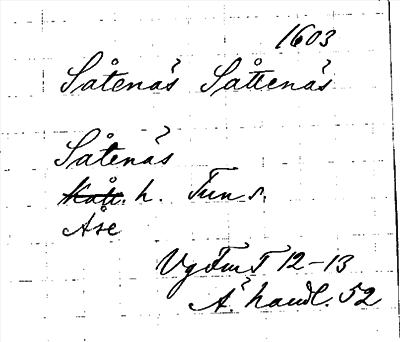 1603
Såtenäs Såttenäs
Såtenäs
Kåll. h. Tun s.
Åse
VgFmT 12-13
A. handl. 52